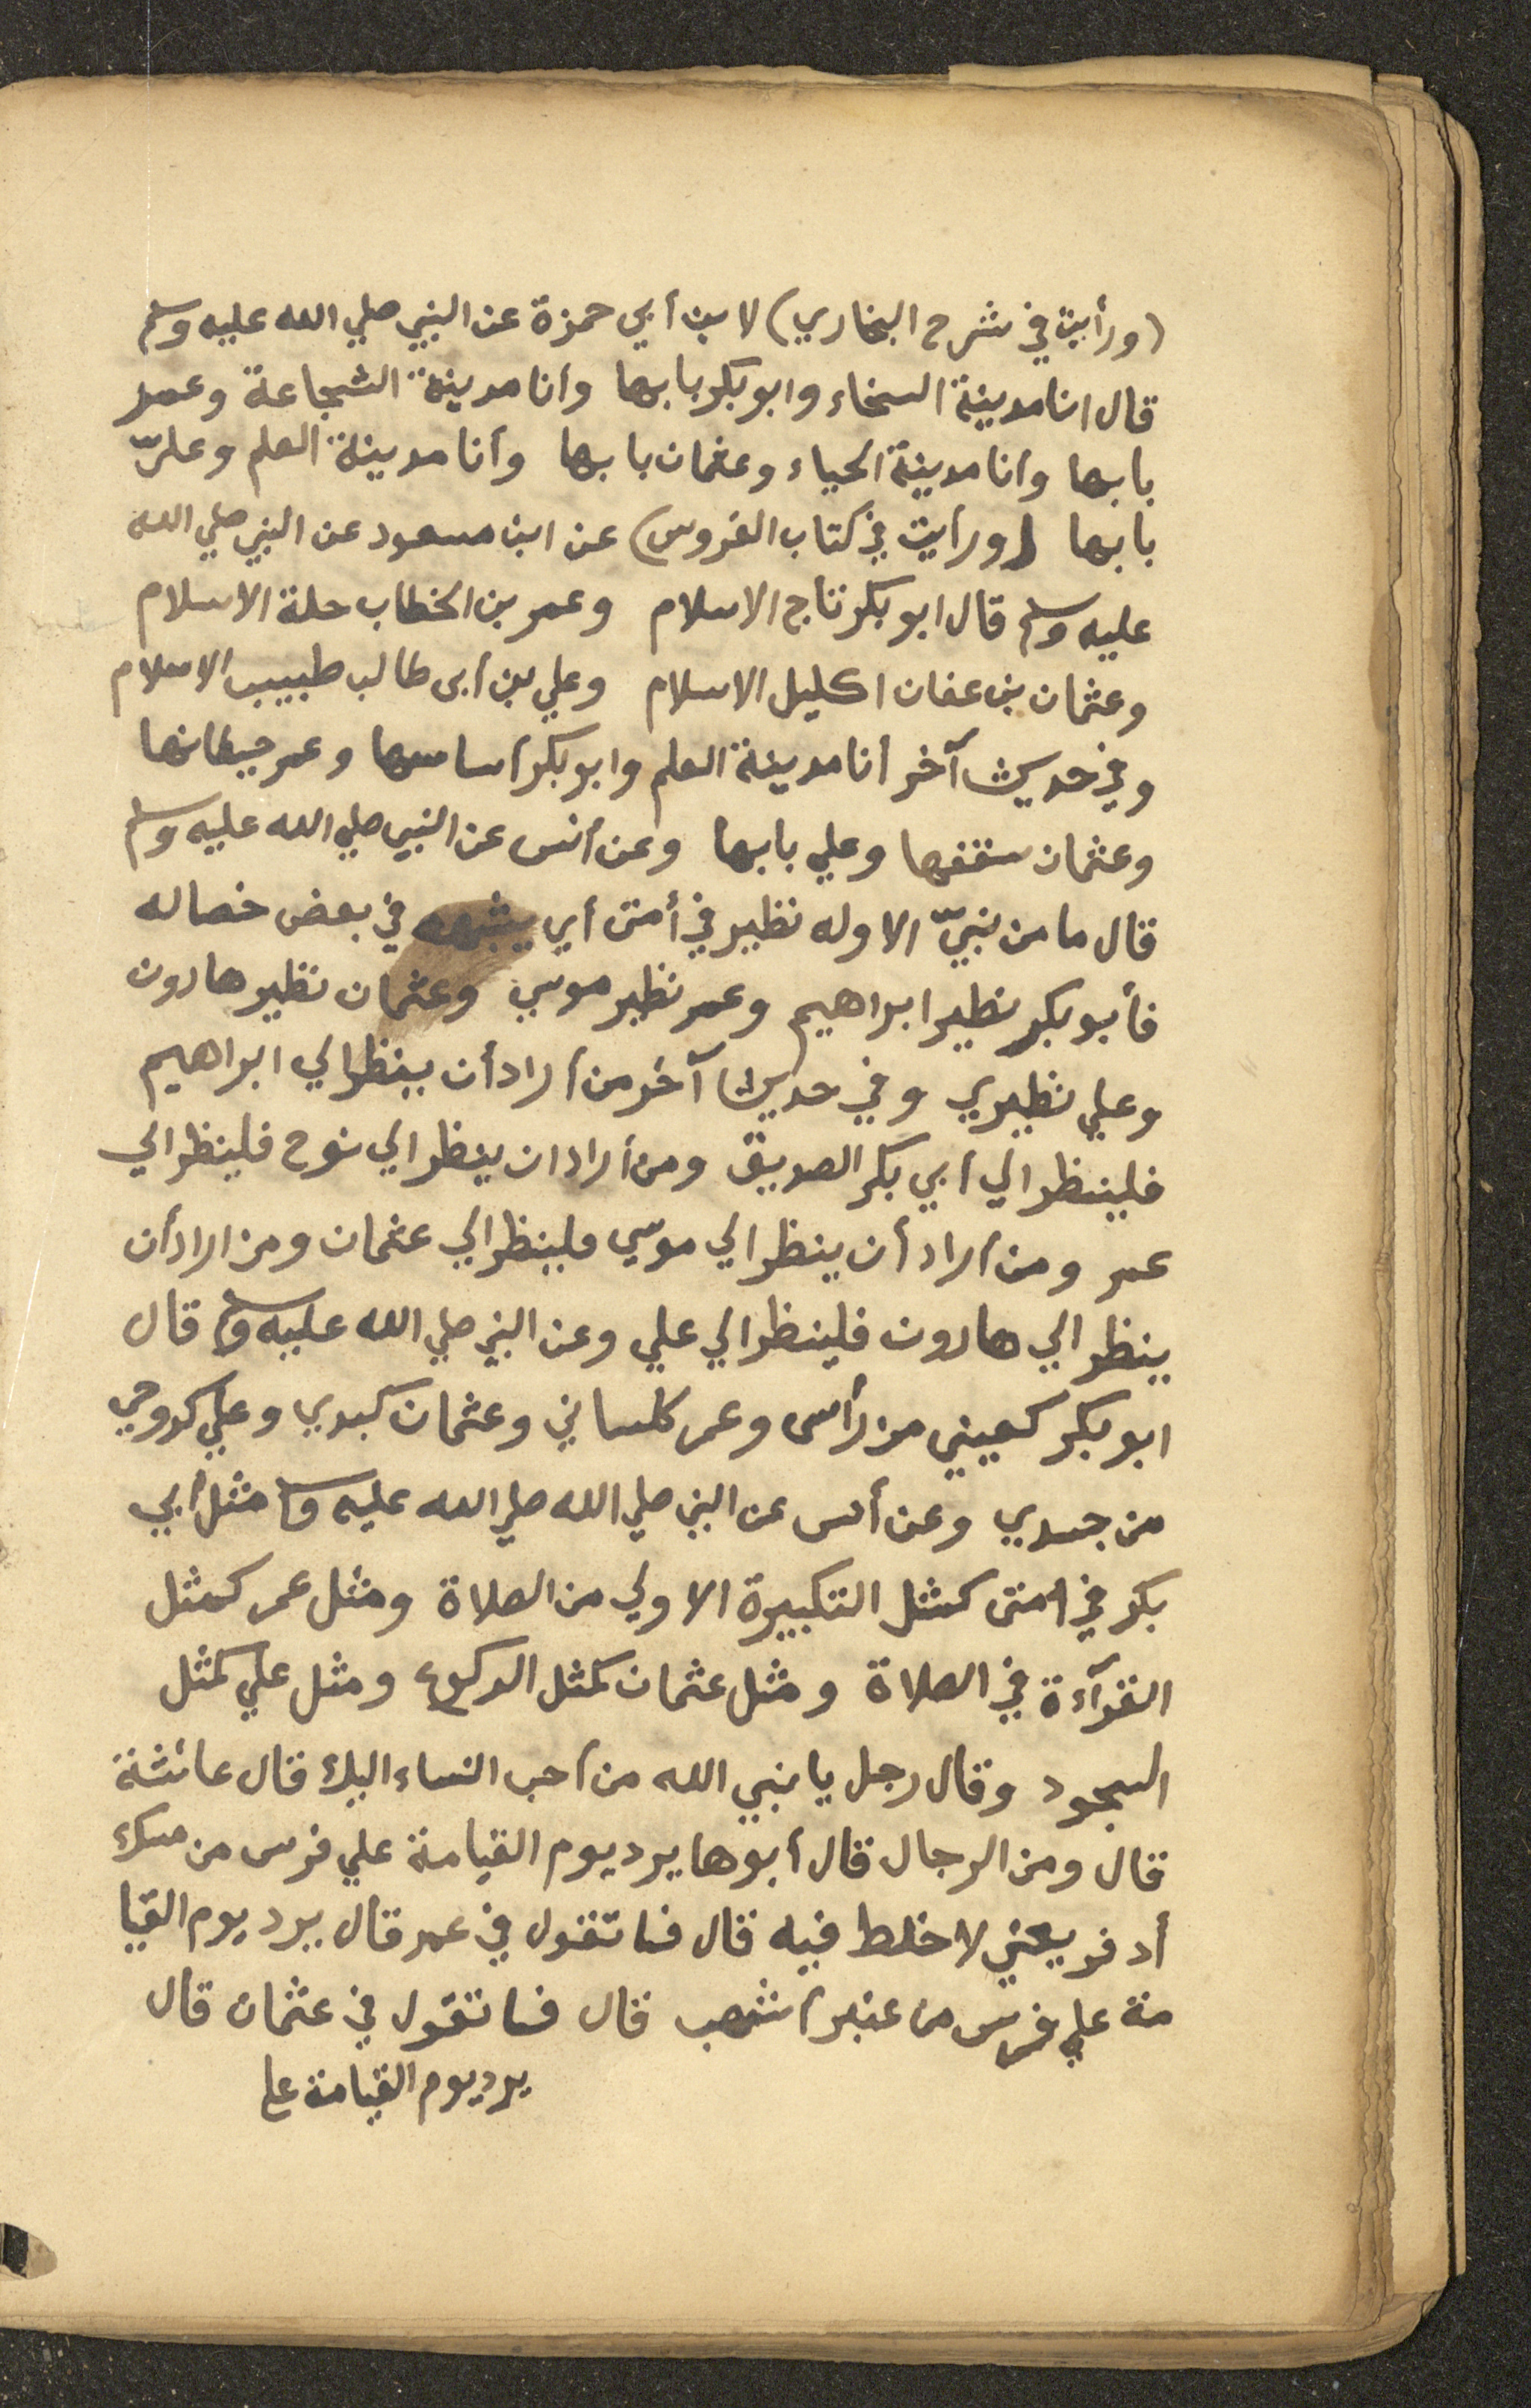 (ورأيت في شرح البخاري) لابن أبي حمزة عن النبي صلي الله عليه وسلم
قال انا مدينة السخاء وابو بكر بابها وأنا مدينة الشجاعة وعمر
بابها وأنا مدينة الحياء وعثمان بابها وأنا مدينة العلم وعليّ
بابها (ورأيت في كتاب الفروس) عن ابن مسعود عن النبي صلي الله
عليه وسلم قال ابو بكر تاج الاسلام وعمر بن الخطاب حلة الاسلام
وعثمان بن عفان اكليل الاسلام وعلي بن أبى طالب طبيب الاسلام
وفي حديث آخر أنا مدينة العلم وابو بكر أساسها وعمر حيطانها
وعثمان سقفها وعلي بابها وعن أنس عن النبي صلي الله عليه وسلم
قال ما من نبيّ الا وله نظير في أمتى أي يشبهه في بعض خصاله
فأبو بكر نظير ابراهيم وعمر نظير موسي وعثمان نظير هارون
وعلي نظيري وفي حديث آخر من أراد أن ينظر الي ابراهيم
فلينظر الي أبي بكر الصديق ومن أراد ان ينظر الي نوح فلينظر الي
عمر ومن أراد أن ينظر الي موسي فلينظر الي عثمان ومن اراد أن
ينظر الي هارون فلينظر الي علي وعن النبي صلي الله عليه وسلم قال
ابو بكر كعيني من رأسى وعمر كلساني وعثمان كبدي وعلي كروحي
من جسدي وعن أنس عن النبي صلي الله صلي الله عليه وسلم مثل أبي
بكر في أمتى كمثل التكبيرة الاولي من الصلاة ومثل عمر كمثل
القرآءة في الصلاة ومثل عثمان كمثل الركوع ومثل علي كمثل
السجود وقال رجل يا نبي الله من أحب النساء اليك قال عائشة
قال ومن الرجال قال أبوها يرد يوم القيامة علي فرس من مسك
أدفر يعني لا خلط فيه قال فما تقول في عمر قال يرد يوم القيا
مة علي فرس من عنبر أشهب قال فما تقول في عثمان قال
يرد يوم القيامة علي